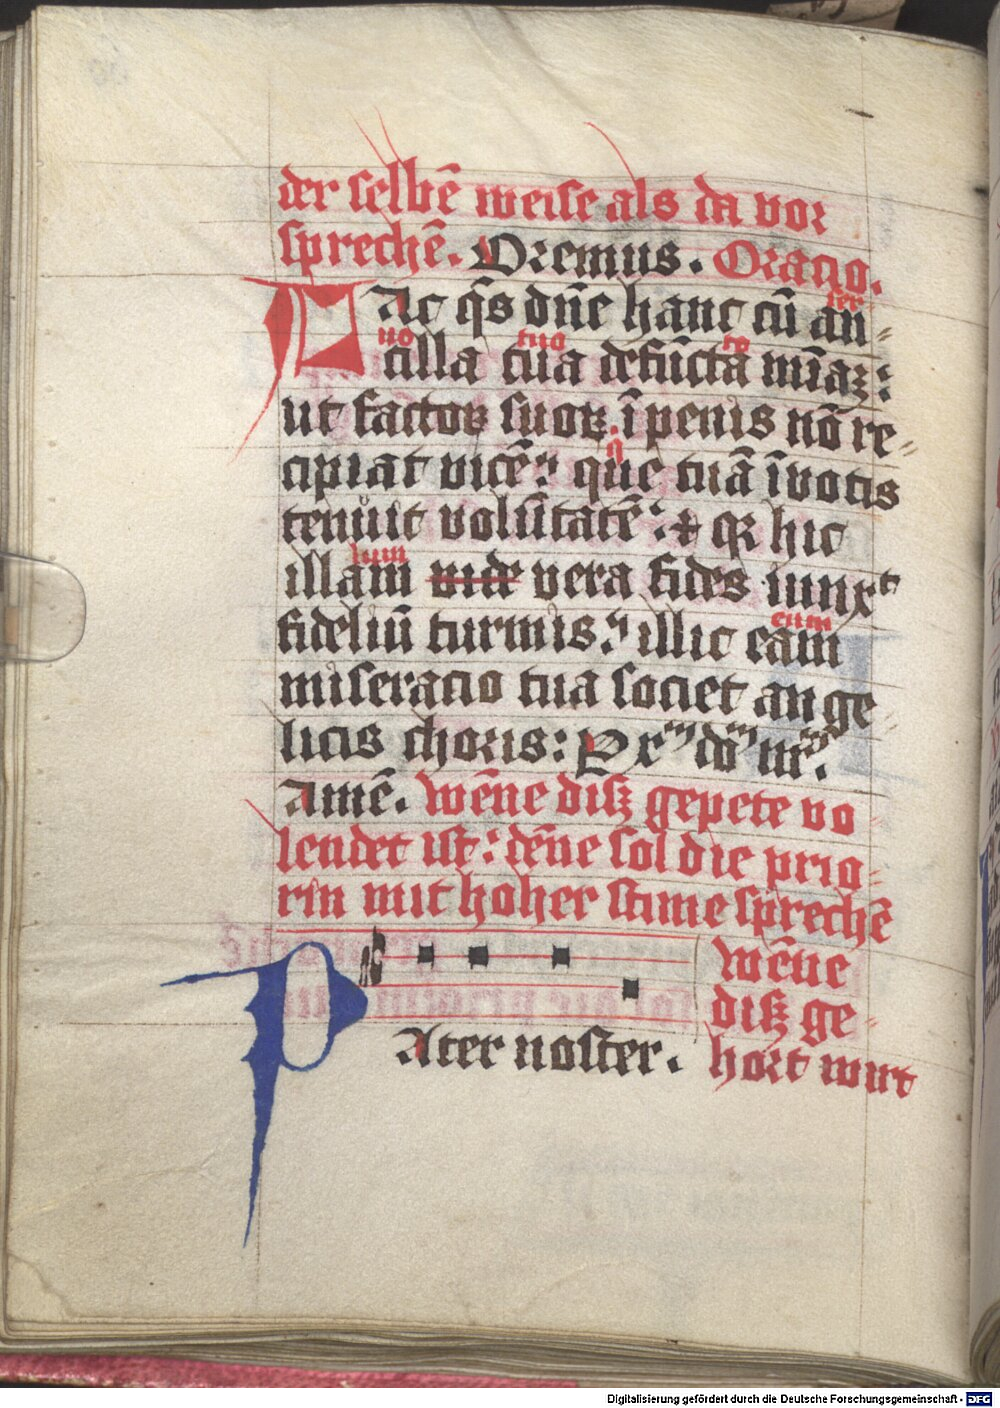 der selbē weise als da vor
sprechē. Oremus. Oracio.
FAc q̄s dn̄e hanc cū an-
ter
cilla tua defūcta mīaꝫ:
uo tuo to
ut factoꝝ suoꝝ ī penis nō re-
cipiat vicē: que tuā ī votis
q
tenuit volūtatē: ⁊ q hic
illam vide vera fides iunxᵗ
lum
fideliū turmis: illic eam
eum
miseracio tua societ ange-
licis choris: P xᵐ dō nrᵐ.
Amē. wēne diß gepete vo
lendet ist: dēne sol die prio-
rin mit hoher stime sprechē
PAter noster.
wēne
diß ge-
hort wirt
Digitalisierung gefördert durch die Deutsche Forschungsgemeinschaft - DFG